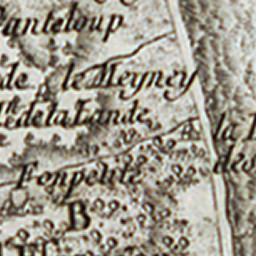 Canteloup
de le Meyney
lle de la Lande
la
des
Fonpetite
B